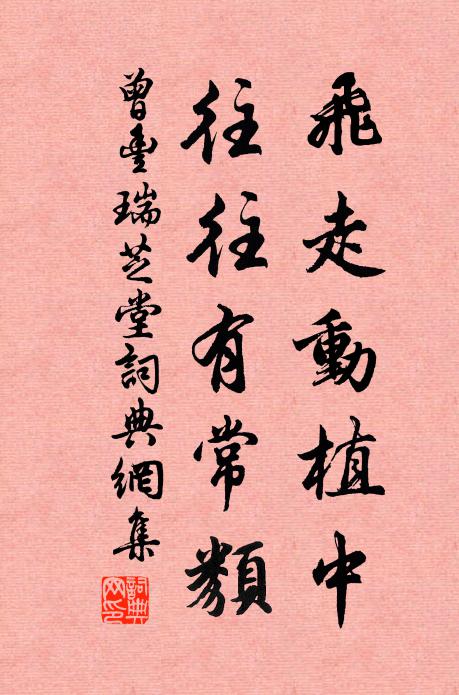 飛走動植中
往往有常類
曾豐瑞芝堂詞典網集
詞典網印